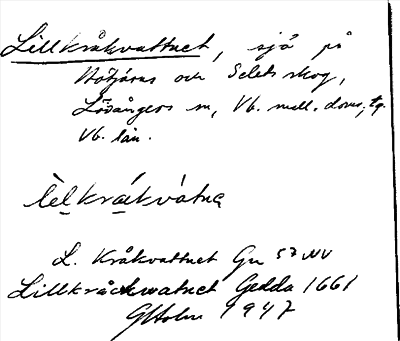 Lillkråkvattnet, sjö på
Nötjärns och Selets skog,
Lövångers sn, Vb. mell. doms; tg.
Vb. län.
lèlkrákvátnɐ
L. Kråkvattnet Gu 57 NV
Lillkråckwatnet Gedda 1661
GHolm 1947